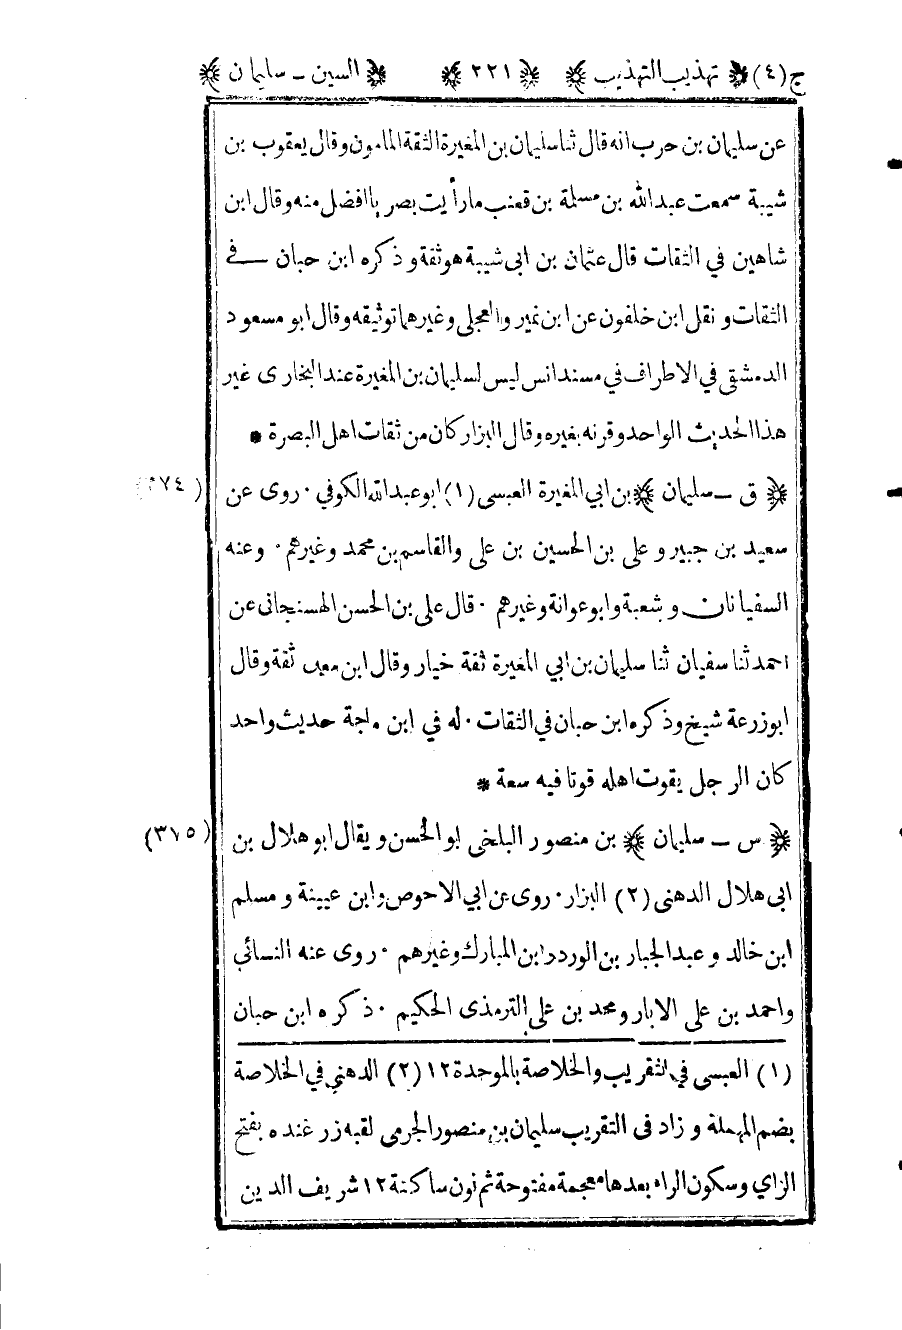 ج(٤) تهذيب التهذيب ٢٢١ السين - سليمان
عن سليمان بن حرب انه قال ثنا سليمان بن المغيرة الثقة المامون وقال يعقوب بن
شيبة سمعت عبد الله بن مسلمة بن قعنب ما رأيت بصريا افضل منه وقال ابن
شاهين في الثقات قال عثمان بن ابى شيبة هو ثقة وذكره ابن حبان فى
الثقات ونقل ابن خلفون عن ابن نمير والعجلى وغيرهما توثيقه وقال ابو مسعود
الدمشقى في الاطراف في مسند انس ليس لسليمان بن المغيرة عند البخارى غير
هذا الحديث الواحد وقرنه بغيره وقال البزار كان من ثقات اهل البصرة *
(٣٧٤) ق - سليمان بن ابي المغيرة العبسى (١) ابو عبد الله الكوفي ٠ روى عن
سعيد بن جبير وعلى بن الحسين بن على والقاسم بن محمد وغيرهم ٠ وعنه
السفيانان وشعبة وابو عوانة وغيرهم ٠ قال على بن الحسن الهسنجانى عن
احمد ثنا سفيان ثنا سليمان بن ابي المغيرة ثقة خيار وقال ابن معين ثقة وقال
ابو زرعة شيخ وذكره ابن حبان في الثقات ٠ له في ابن ماجة حديث واحد
كان الرجل يقوت اهله قوتا فيه سعة *
(٣٧٥) س - سليمان بن منصور البلخى ابو الحسن ويقال ابو هلال بن
ابى هلال الدهنى (٢) البزار ٠ روى عن ابي الاحوص وابن عيينة ومسلم
ابن خالد وعبد الجبار بن الورد وابن المبارك وغيرهم ٠ روى عنه النسائي
واحمد بن على الابار ومحمد بن على الترمذى الحكيم ٠ ذكره ابن حبان
(١) العبسى في التقريب والخلاصة بالموحدة ١٢ (٢) الدهني في الخلاصة
بضم المهملة وزاد فى التقريب سليمان بن منصور الجرمى لقبه زرغنده بفتح
الزاي وسكون الراء بعدها معجمة مفتوحة ثم نون ساكنة ١٢ شريف الدين